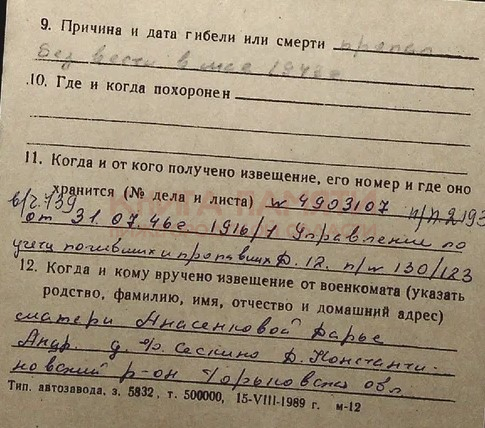 9. Причина и дата гибели или смерти пропал
без вести в мае 1942г
10. Где и когда похоронен
11. Когда и от кого получено извещение, его номер и где оно
хранится (№ дела и листа) № 4903107 п/п 2193
в/ч. 139
от 31.07.46г 1916/1 Управление по
учету погибших и пропавших д. 12. п/№ 130/123
12. Когда и кому вручено извещение от военкомата (указать
родство, фамилию, имя, отчество и домашний адрес)
матери Анасенковой Дарье
Андр. д. Д. Константи-
новский р-он Горьковская обл
Тип. автозавода, з. 5832, т. 500000, 15-VIII-1989 г. м-12
КНИГА ПАМЯТИ